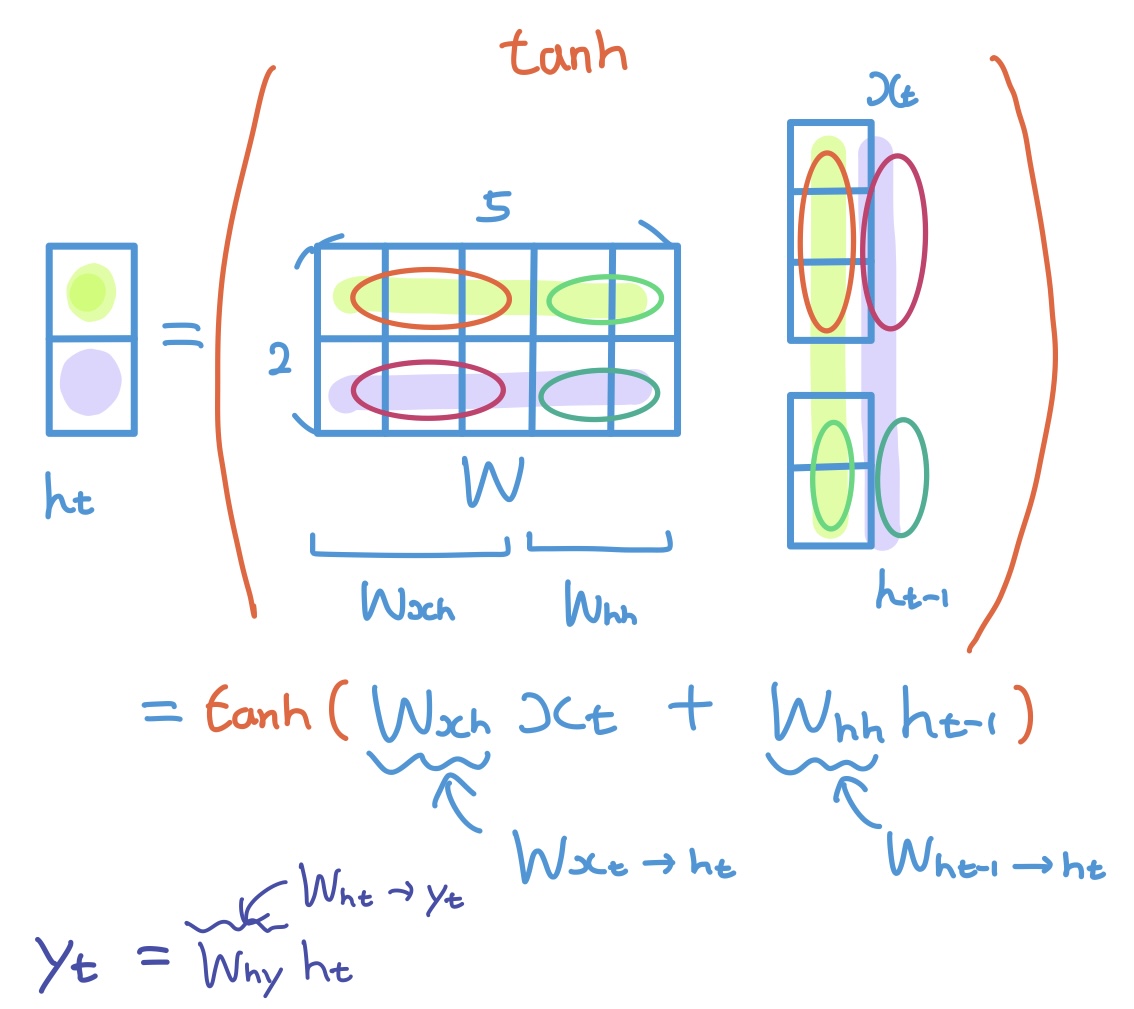 tanh
xt
5
2
=
ht
W
Wxh
Whh
ht-1
= tanh ( Wxh xt + Whh ht-1 )
Wxt → ht
Wht-1 → ht
Wht → yt
yt = Why ht